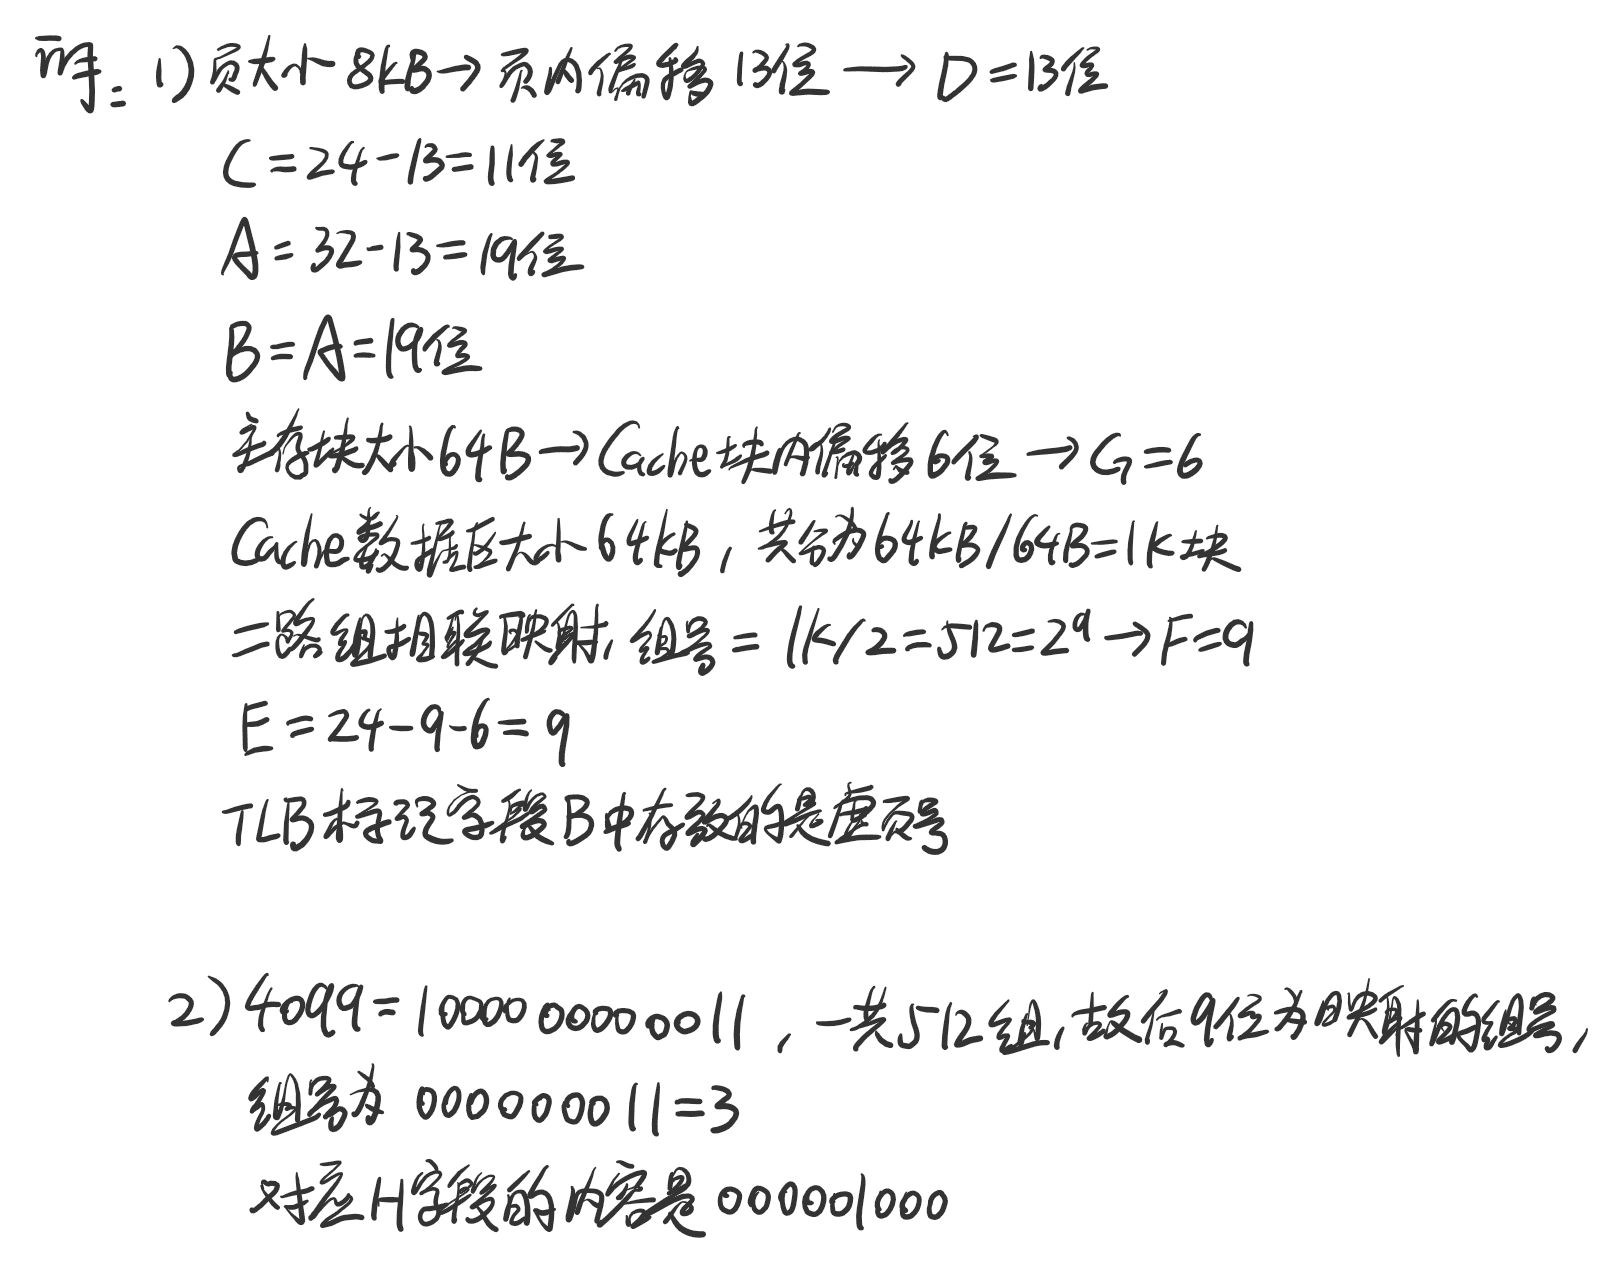 解: 1) 页大小 8kB→页内偏移 13位 → D=13位
C=24-13=11位
A=32-13=19位
B=A=19位
主存块大小64B→Cache块内偏移6位→G=6
Cache数据区大小64kB, 共分为64kB/64B=1K块
二路组相联映射, 组号=1K/2=512=2⁹→F=9
E=24-9-6=9
TLB标记字段B中存放的是虚页号
2) 4099=1000000000011, 一共512组, 故后9位为映射的组号,
组号为 000000011=3
对应H字段的内容是 000001000